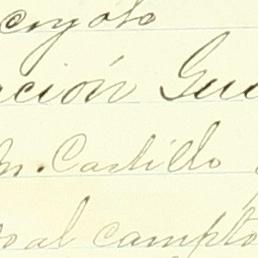 coyote
ación Gu
m. Castillo
o al campto